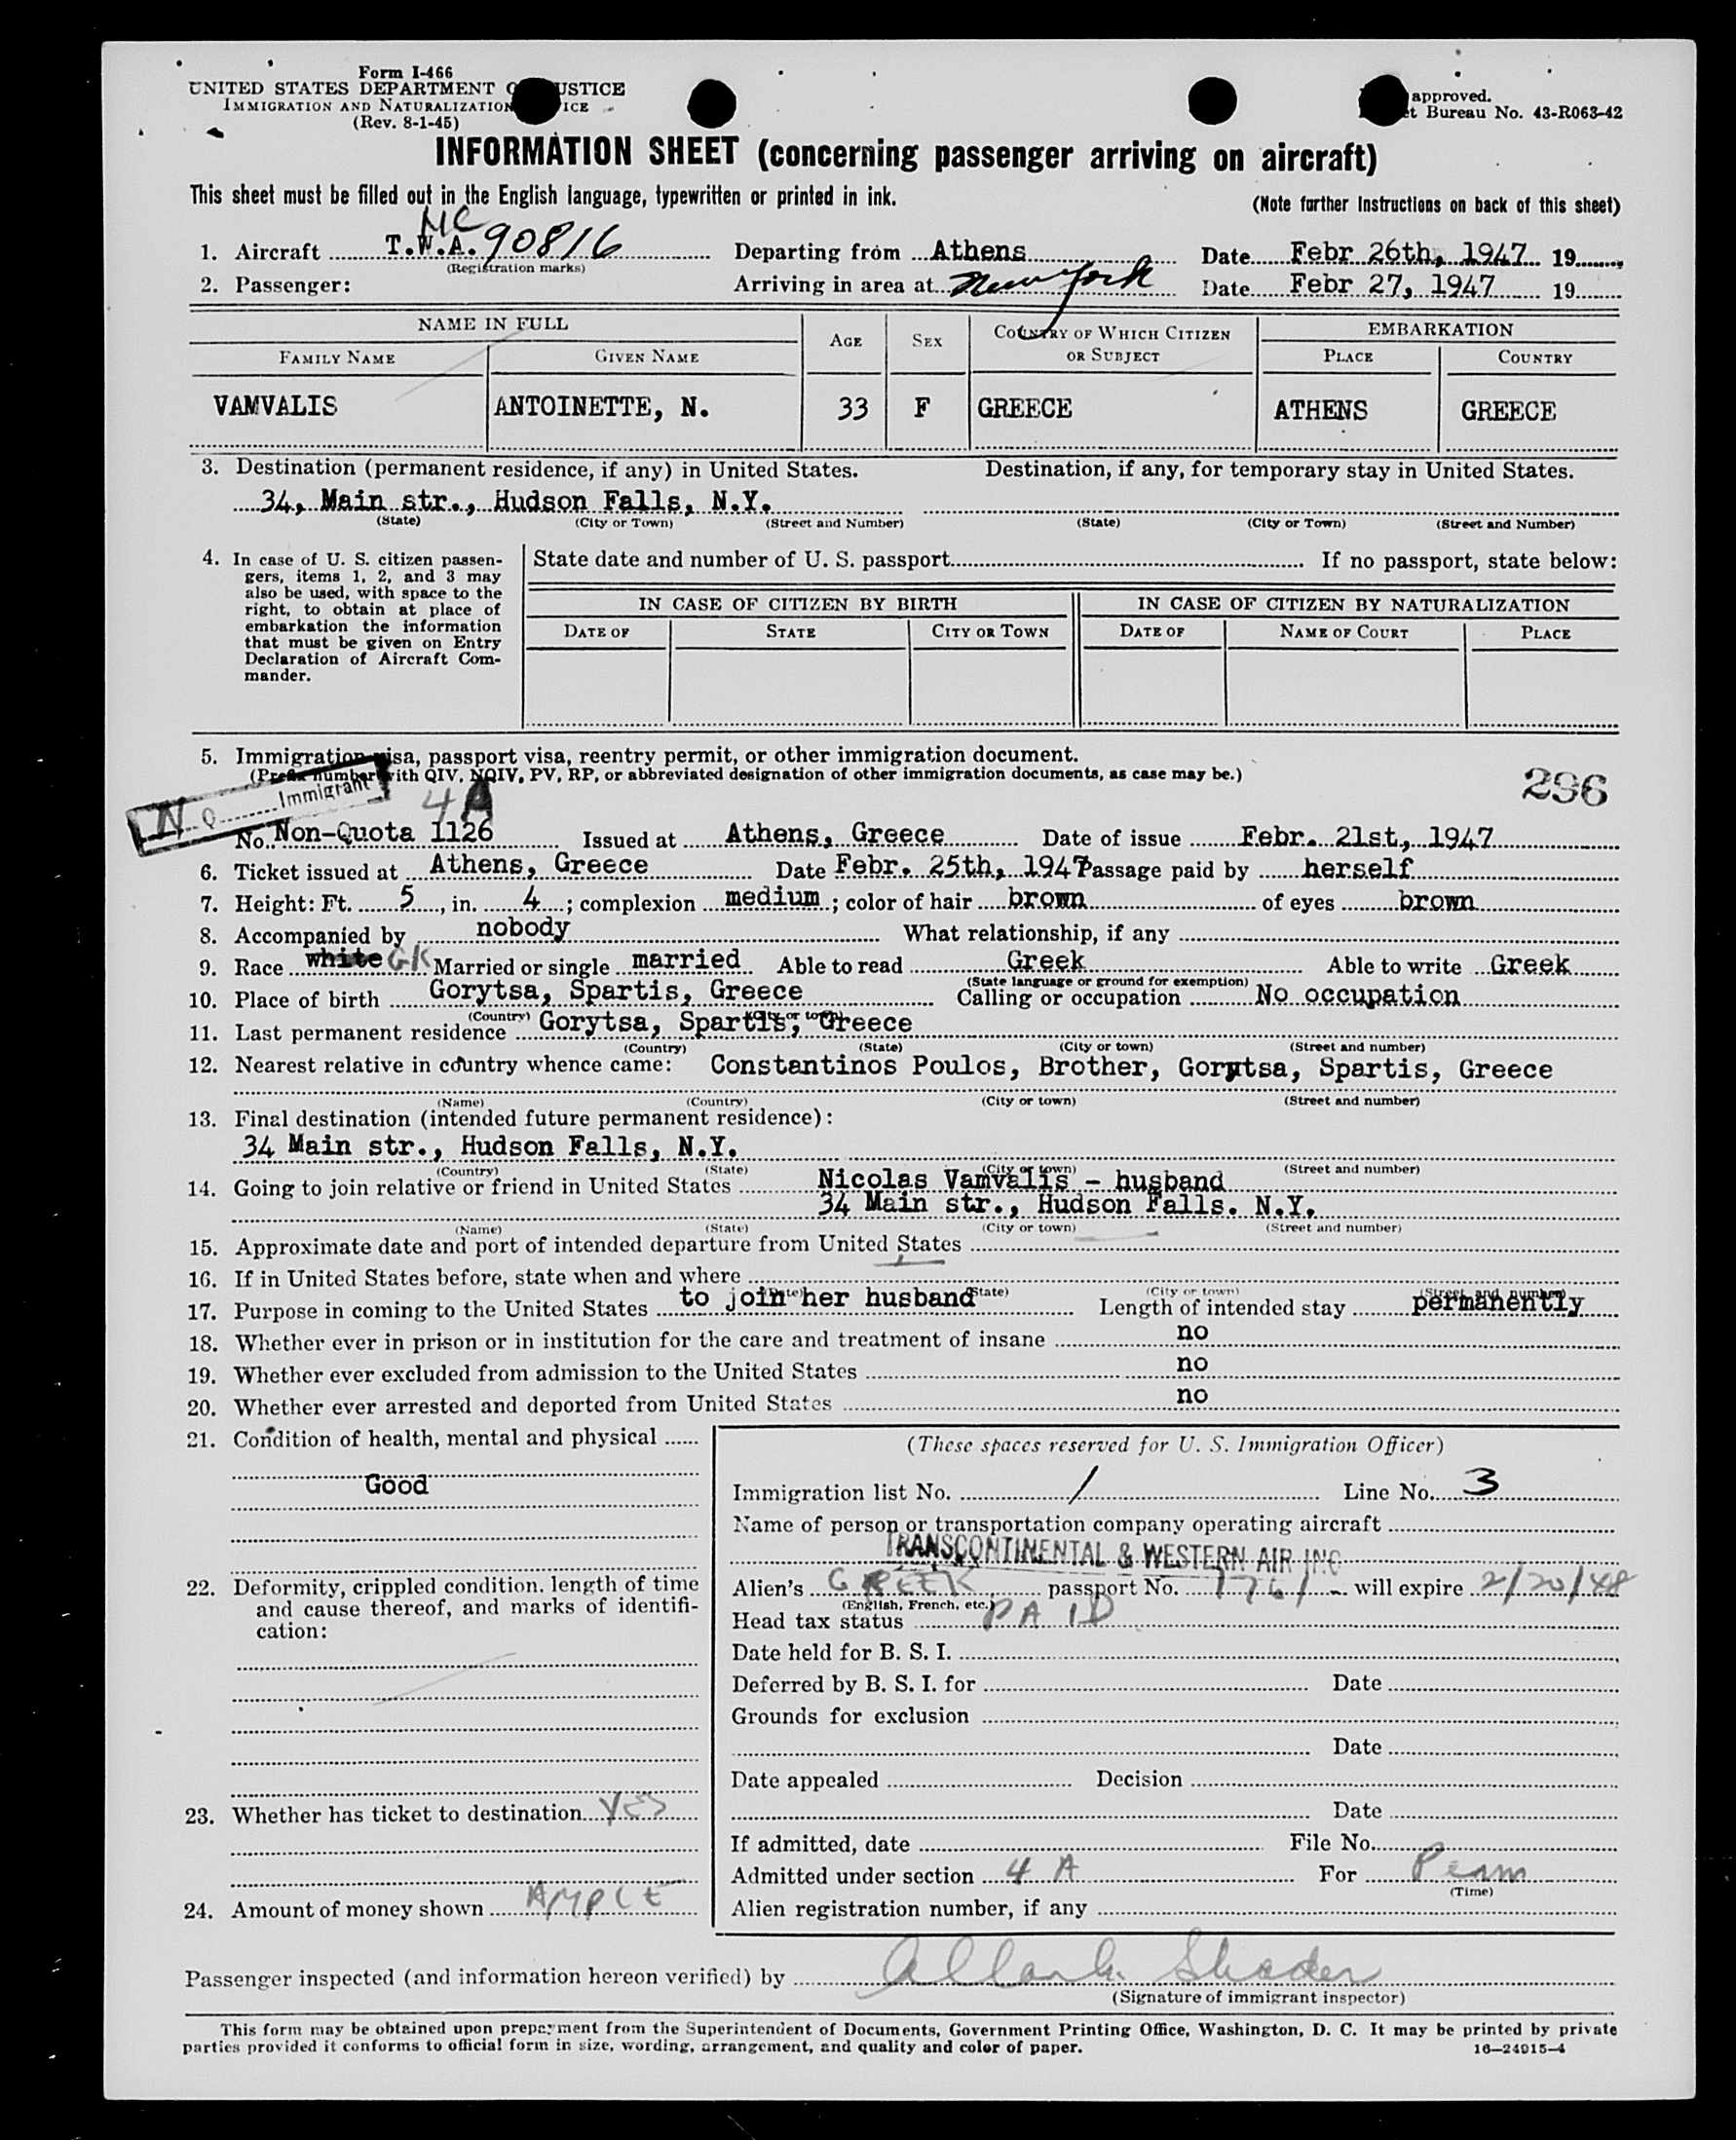 Form I-466
UNITED STATES DEPARTMENT O USTICE
IMMIGRATION AND NATURALIZATION ICE
(Rev. 8-1-45)
approved.
t Bureau No. 43-R063-42
INFORMATION SHEET (concerning passenger arriving on aircraft)
This sheet must be filled out in the English language, typewritten or printed in ink.
(Note further instructions on back of this sheet)
NC
1. Aircraft T.W.A. 90816 Departing from Athens Date Febr 26th, 1947 19
(Registration marks)
2. Passenger: Arriving in area at New York Date Febr 27, 1947 19
NAME IN FULL AGE SEX COUNTRY OF WHICH CITIZEN OR SUBJECT EMBARKATION
FAMILY NAME GIVEN NAME PLACE COUNTRY
VAMVALIS ANTOINETTE, N. 33 F GREECE ATHENS GREECE
3. Destination (permanent residence, if any) in United States. Destination, if any, for temporary stay in United States.
34, Main str., Hudson Falls, N.Y.
(State) (City or Town) (Street and Number) (State) (City or Town) (Street and Number)
4. In case of U. S. citizen passen-
gers, items 1, 2, and 3 may
also be used, with space to the
right, to obtain at place of
embarkation the information
that must be given on Entry
Declaration of Aircraft Com-
mander.
State date and number of U. S. passport If no passport, state below:
IN CASE OF CITIZEN BY BIRTH IN CASE OF CITIZEN BY NATURALIZATION
DATE OF STATE CITY OR TOWN DATE OF NAME OF COURT PLACE
5. Immigration visa, passport visa, reentry permit, or other immigration document.
(Prefix number with QIV, NQIV, PV, RP, or abbreviated designation of other immigration documents, as case may be.)
N Q Immigrant
4A
296
No. Non-Quota 1126 Issued at Athens, Greece Date of issue Febr. 21st, 1947
6. Ticket issued at Athens, Greece Date Febr. 25th, 1947 Passage paid by herself
7. Height: Ft. 5, in. 4; complexion medium; color of hair brown of eyes brown
8. Accompanied by nobody What relationship, if any
9. Race white GK Married or single married Able to read Greek Able to write Greek
(State language or ground for exemption)
10. Place of birth Gorytsa, Spartis, Greece Calling or occupation No occupation
(Country) (City or town)
11. Last permanent residence Gorytsa, Spartis, Greece
(Country) (State) (City or town) (Street and number)
12. Nearest relative in country whence came: Constantinos Poulos, Brother, Gorytsa, Spartis, Greece
(Name) (Country) (City or town) (Street and number)
13. Final destination (intended future permanent residence):
34 Main str., Hudson Falls, N.Y.
(Country) (State) (City or town) (Street and number)
14. Going to join relative or friend in United States Nicolas Vamvalis - husband
34 Main str., Hudson Falls. N.Y.
(Name) (State) (City or town) (Street and number)
15. Approximate date and port of intended departure from United States
16. If in United States before, state when and where
(Date) (State) (City or town) (Street and number)
17. Purpose in coming to the United States to join her husband Length of intended stay permanently
18. Whether ever in prison or in institution for the care and treatment of insane no
19. Whether ever excluded from admission to the United States no
20. Whether ever arrested and deported from United States no
21. Condition of health, mental and physical
Good
22. Deformity, crippled condition, length of time
and cause thereof, and marks of identifi-
cation:
23. Whether has ticket to destination YES
24. Amount of money shown AMPLE
(These spaces reserved for U. S. Immigration Officer)
Immigration list No. 1 Line No. 3
Name of person or transportation company operating aircraft
TRANSCONTINENTAL & WESTERN AIR INC
Alien's GREEK passport No. 1761 will expire 2/20/48
(English, French, etc.)
Head tax status PAID
Date held for B. S. I.
Deferred by B. S. I. for Date
Grounds for exclusion
Date
Date appealed Decision
Date
If admitted, date File No.
Admitted under section 4A For Perm
(Time)
Alien registration number, if any
Passenger inspected (and information hereon verified) by
(Signature of immigrant inspector)
This form may be obtained upon prepayment from the Superintendent of Documents, Government Printing Office, Washington, D. C. It may be printed by private
parties provided it conforms to official form in size, wording, arrangement, and quality and color of paper. 16—24915-4